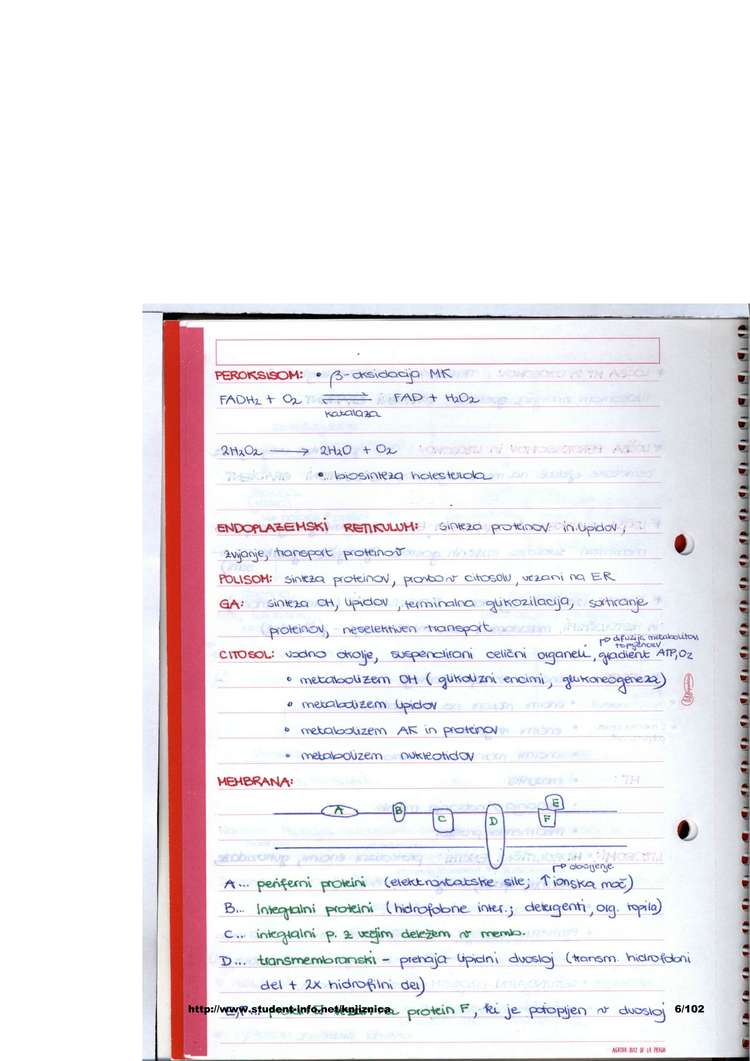 PEROKSISOM: • β-oksidacija MK
FADH2 + O2 ⇌ FAD + H2O2
katalaza
2H2O2 → 2H2O + O2
• biosinteza holesterola
ENDOPLAZEMSKI RETIKULUM: sinteza proteinov in lipidov,
zvijanje, transport proteinov
POLISOM: sinteza proteinov, prosto v citosolu, vezani na ER
GA: sinteza OH, lipidov, terminalna glikozilacija, sortiranje
proteinov, neselektiven transport
↱ difuzija metabolitov
topljencev
CITOSOL: vodno okolje, suspendirani celični organeli, gradient ATP, O2
• metabolizem OH (glikolizni encimi, glukoneogeneza)
• metabolizem lipidov
• metabolizem AK in proteinov
• metabolizem nukleotidov
MEMBRANA:
A B C D E F
↱ obarjenje
A... periferni proteini (elektrostatske sile; ↑ ionska moč)
B... Integralni proteini (hidrofobne inter.; detergenti, org. topila)
C... integralni p. z večjim deležem v memb.
D... transmembranski - prehaja lipidni dvosloj (transm. hidrofobni
del + 2x hidrofilni del)
protein F, ki je potopljen v dvosloj
http://www.student-info.net/knjiznica 6/102
AGATHA RUIZ DE LA PRADA